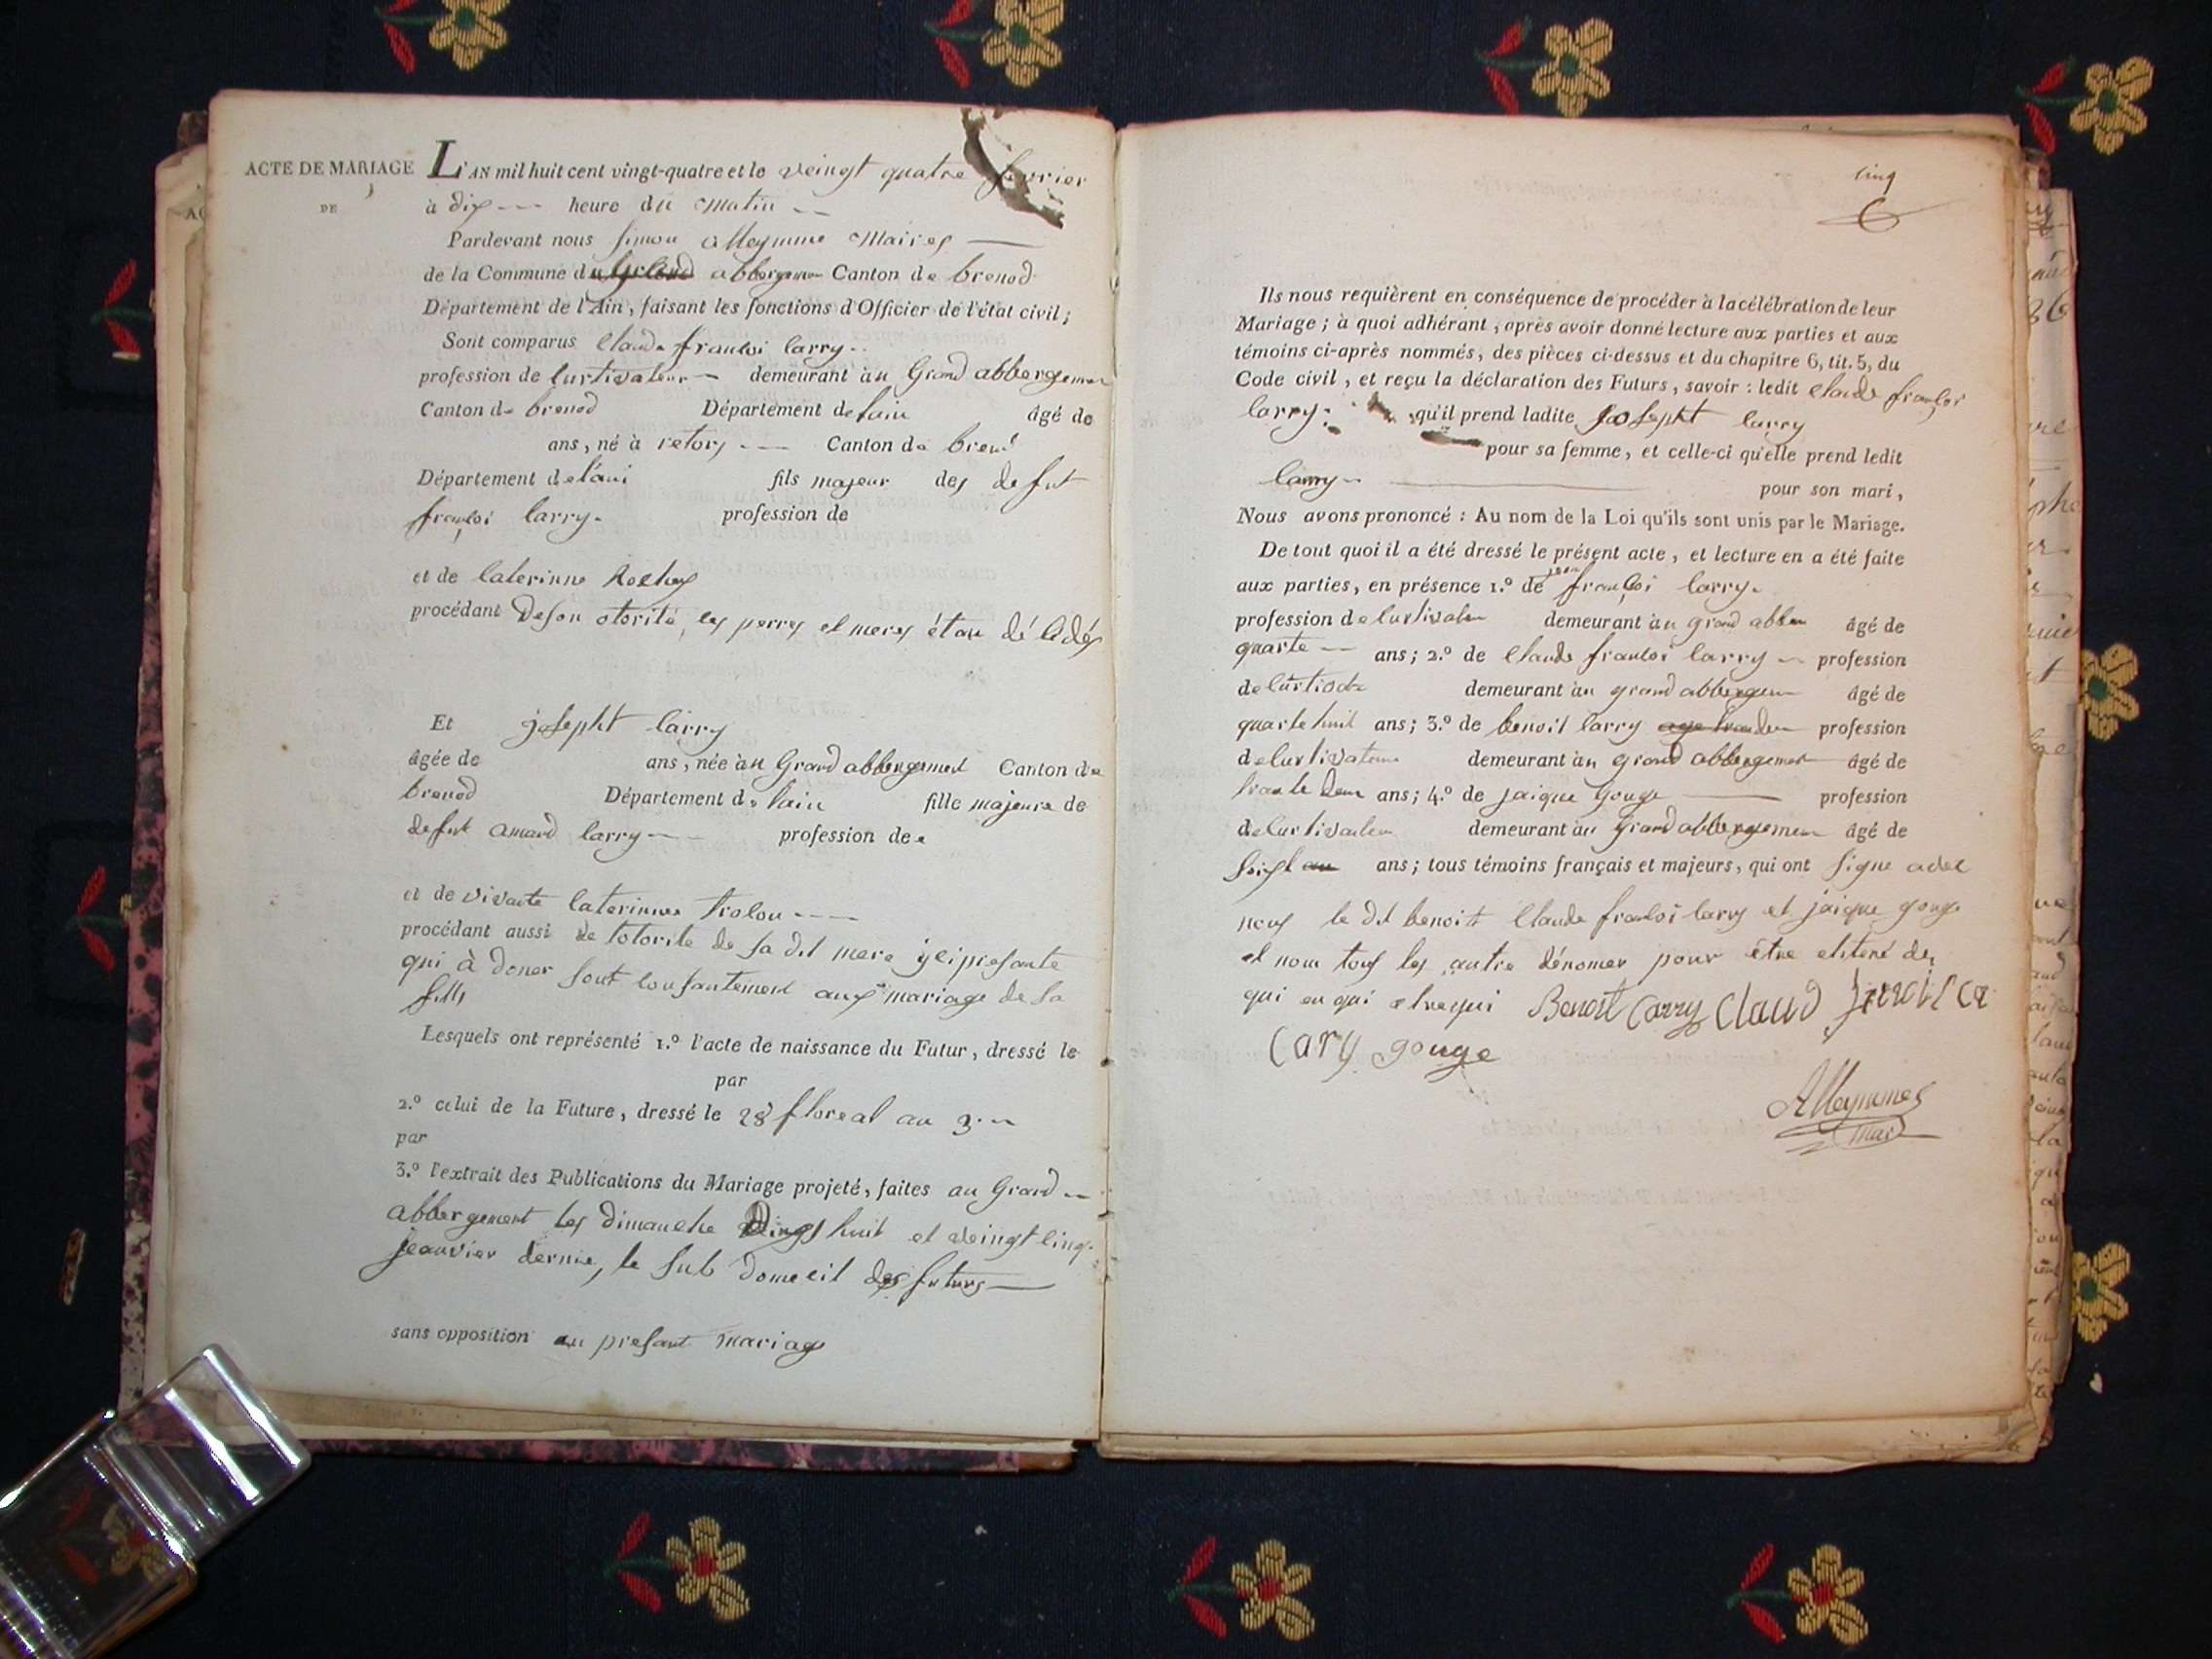 ACTE DE MARIAGE
DE
L'AN mil huit cent vingt-quatre et le veingt quatre fevrier
à dix --- heure du matin --
Pardevant nous Simon alleymme Maires
de la Commune du abbergemen Canton de brenod
Département de l'Ain, faisant les fonctions d'Officier de l'état civil;
Sont comparus Claude francoi Carry
profession de Curtivateur demeurant au Grand abbergemen
Canton de brenod Département de Lain âgé de
ans, né à retors --- Canton de breno
Département de lain fils majeur des defut
françoi Carry. profession de
et de Caterinne
procédant de son otorité, les perres et meres étan dé cedés
Et josepht Carry
âgée de ans, née au Grand abbergement Canton de
brenod Département de Lain fille majeure de
defut amand Carry --- profession de
et de vivante Caterinne ---
procédant aussi de totorite de sa dit mere ycipresante
qui à doner sont consantement aux mariage de sa
fills
Lesquels ont représenté 1.º l'acte de naissance du Futur, dressé le
par
2.º celui de la Future, dressé le 28 floreal an 3.
par
3.º l'extrait des Publications du Mariage projeté, faites au Grand
abbergement les dimanche huit et veingt cinq
jeanvier dernie, le domecil des futurs
sans opposition au presant mariage
cinq
Ils nous requièrent en conséquence de procéder à la célébration de leur
Mariage; à quoi adhérant, après avoir donné lecture aux parties et aux
témoins ci-après nommés, des pièces ci-dessus et du chapitre 6, tit. 5, du
Code civil, et reçu la déclaration des Futurs, savoir: ledit Claude françoi
Carry: qu'il prend ladite josepht Carry
pour sa femme, et celle-ci qu'elle prend ledit
Carry pour son mari,
Nous avons prononcé: Au nom de la Loi qu'ils sont unis par le Mariage.
De tout quoi il a été dressé le présent acte, et lecture en a été faite
aux parties, en présence 1.º de jean françoi Carry.
profession de Curtivateu demeurant au grand abben âgé de
quarte -- ans; 2.º de Claude francoi Carry profession
de demeurant au grand abbergem âgé de
quarte huit ans; 3.º de benoit Carry profession
de Curtivateur demeurant au grand abbergement âgé de
trante deux ans; 4.º de jaique gouge profession
de Curtivateur demeurant au grand abbergemen âgé de
ans; tous témoins français et majeurs, qui ont signe avec
nous le dit benoit Claude francoi Carry et jaique gouge
et non tous les autre dénomer pour être
qui en qui Benoit Carry Claud
Cary gouge
Alleymmes
mair